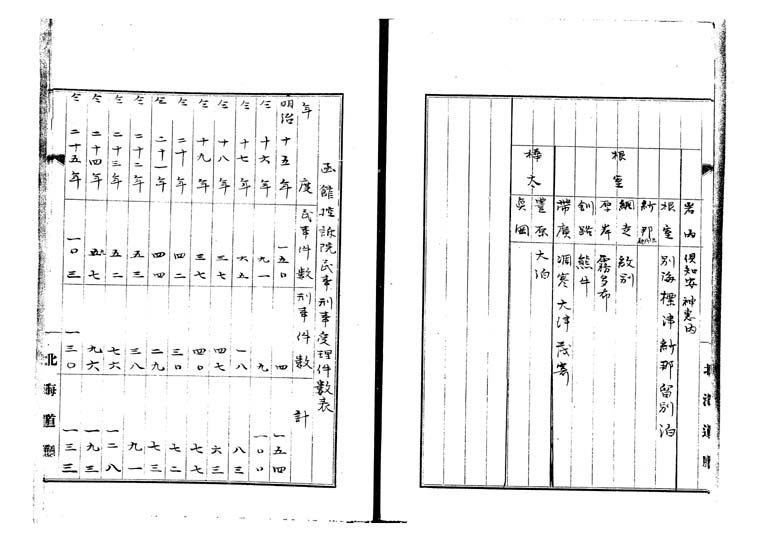 岩内 倶知安 神恵内
根室
根室 別海 標津 紗那 留別 泊
紗那
網走 紋別
厚岸 霧多布
釧路 熊牛
帯廣 凋寒 大津 茂寄
樺太
豊原 大泊
眞岡
北海道廳
函館控訴院民事刑事受理件数表
年度 民事件数 刑事件数 計
明治十五年 一五〇 四 一五四
仝十六年 九一 九 一〇〇
仝十七年 六五 一八 八三
仝十八年 三七 四七 六三
仝十九年 三七 四〇 七七
仝二十年 四二 三〇 七二
仝二十一年 四四 二九 七三
仝二十二年 五三 三八 九一
仝二十三年 五二 七六 一二八
仝二十四年 五七 九六 一九三
仝二十五年 一〇三 一三〇 一三三
北海道廳